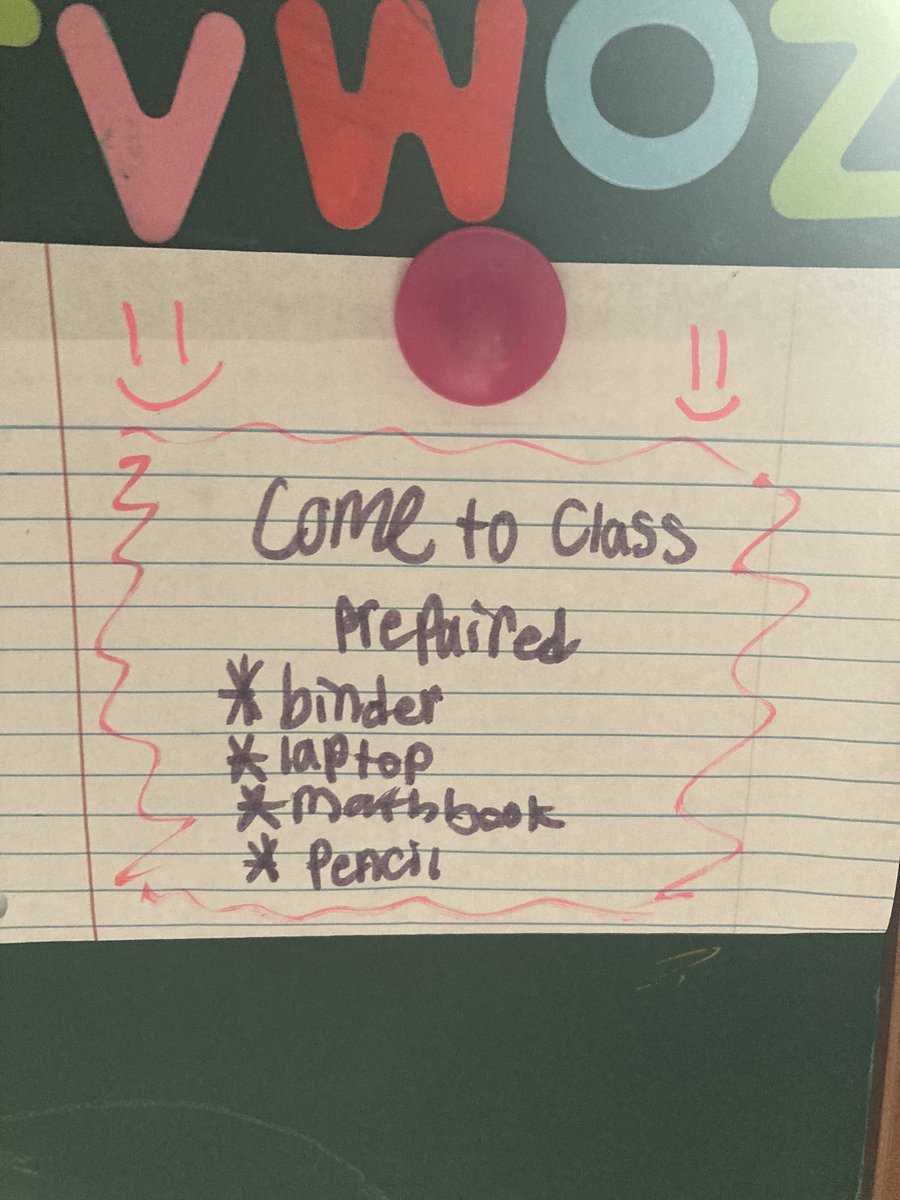 VWOZ
Come to Class
prepaired
* binder
* laptop
* mathbook
* pencil